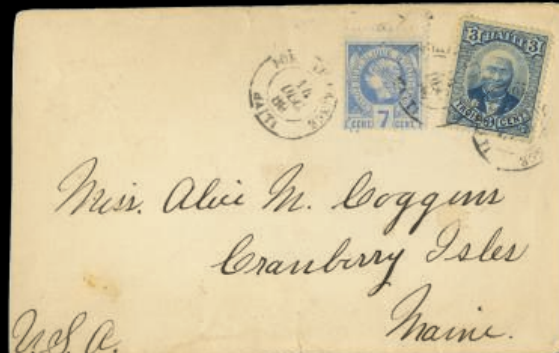 HAITI
3
3
CENT
7
CENT
CENT
14
Miss. Alice M. Coggins
Cranberry Isles
Maine.
U.S.A.